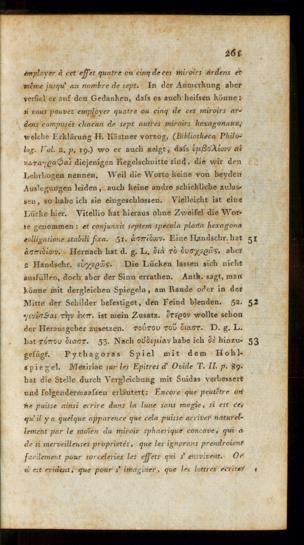 261
employer à cet effet quatre ou cinq de ces miroirs ardens et
même jusqu' au nombre de sept. In der Anmerkung aber
verfiel er auf den Gedanken, dass es auch heissen könne:
si vous pouvez employer quatre ou cinq de ces miroirs ar-
dens composés chacun de sept autres miroirs hexagonaux;
welche Erklärung H. Kästner vorzog, (Bibliotheca Philo-
log. Vol. 2. p. 19.) wo er auch zeigt, dass ἐμβολέων αἱ
καταγραφαὶ diejenigen Kegelschnitte sind, die wir den
Lehrbogen nennen. Weil die Worte keine von beyden
Auslegungen leiden, auch keine andre schickliche zulas-
sen, so habe ich sie eingeschlossen. Vielleicht ist eine
Lücke hier. Vitellio hat hieraus ohne Zweifel die Wor-
te genommen: et conjunxit septem specula plana hexagona
colligatione stabili fixa. 51. ἀσπίδων. Eine Handschr. hat 51
ἀσπίδιων. Hernach hat d. g. L. διὰ τὸ δυσχερῶς. aber
2 Handschr. εὐχερῶς. Die Lücken lassen sich nicht
ausfüllen, doch aber der Sinn errathen. Anth. sagt, man
könne mit dergleichen Spiegeln, am Rande oder in der
Mitte der Schilder befestiget, den Feind blenden. 52. 52
γενέσθαι τὴν ἐκπ. ist mein Zusatz. ὕτερον wollte schon
der Herausgeber zusetzen. τούτου τοῦ διαστ. D. g. L.
hat τόπου διαστ. 53. Nach οὐδεμίαν habe ich δὲ hinzu- 53
gefügt. Pythagoras Spiel mit dem Hohl-
spiegel. Meziriac sur les Epitres d' Ovide T. II. p. 89.
hat die Stelle durch Vergleichung mit Suidas verbessert
und folgendermaassen erläutert: Encore que peutêtre on
ne puisse ainsi ecrire dans la lune sans magie, si est ce,
qu'il y a quelque apparence que cela puisse arriver naturel-
lement par le moïen du miroir sphaerique concave, qui a
de si merveilleuses proprietés, que les ignorans prendroient
facilement pour sorceleries les effets qui s' ensuivent. Or
il est evident, que pour s' imaginer, que les lettres ecrites